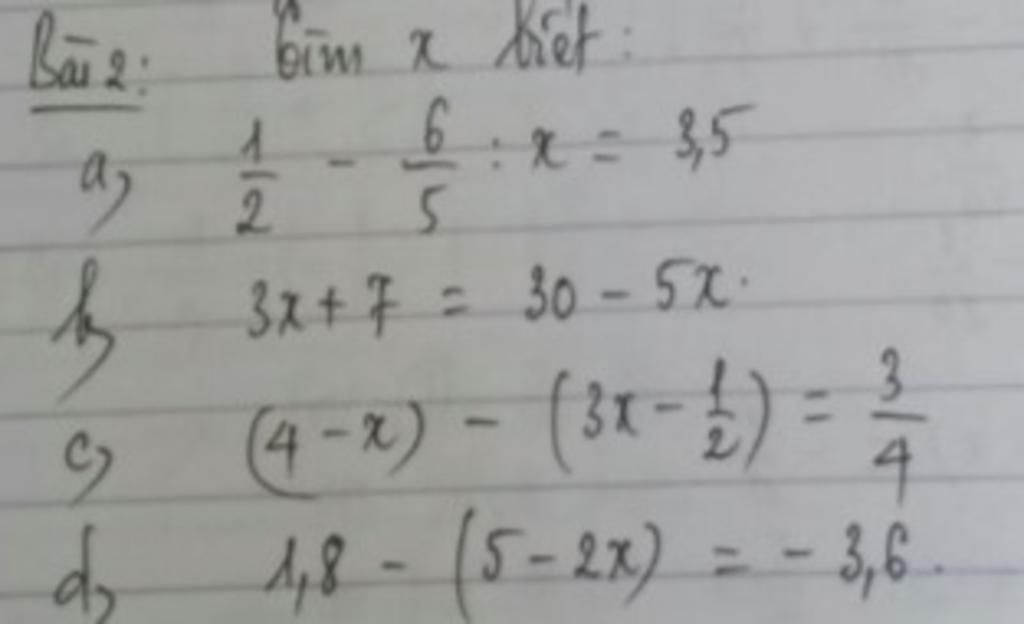 Bài 2: Tìm x biết:
a, 1/2 - 6/5 : x = 3,5
b, 3x + 7 = 30 - 5x.
c, (4 - x) - (3x - 1/2) = 3/4
d, 1,8 - (5 - 2x) = - 3,6.